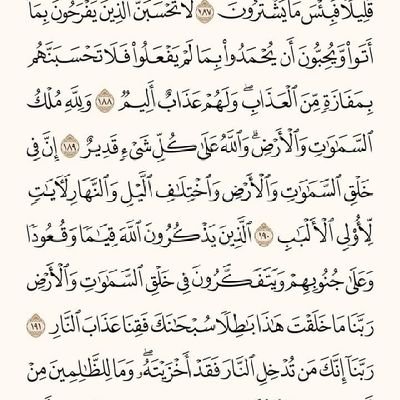 قَلِيلًا فَبِئْسَ مَا يَشْتَرُونَ ١٨٧ لَا تَحْسَبَنَّ الَّذِينَ يَفْرَحُونَ بِمَا
أَتَوا۟ وَّيُحِبُّونَ أَن يُحْمَدُوا۟ بِمَا لَمْ يَفْعَلُوا۟ فَلَا تَحْسَبَنَّهُم
بِمَفَازَةٍ مِّنَ الْعَذَابِ ۖ وَلَهُمْ عَذَابٌ أَلِيمٌ ١٨٨ وَلِلَّهِ مُلْكُ
السَّمَٰوَٰتِ وَالْأَرْضِ ۗ وَاللَّهُ عَلَىٰ كُلِّ شَىْءٍ قَدِيرٌ ١٨٩ إِنَّ فِى
خَلْقِ السَّمَٰوَٰتِ وَالْأَرْضِ وَاخْتِلَٰفِ الَّيْلِ وَالنَّهَارِ لَءَايَٰتٍ
لِّأُو۟لِى الْأَلْبَٰبِ ١٩٠ الَّذِينَ يَذْكُرُونَ اللَّهَ قِيَٰمًا وَقُعُودًا
وَعَلَىٰ جُنُوبِهِمْ وَيَتَفَكَّرُونَ فِى خَلْقِ السَّمَٰوَٰتِ وَالْأَرْضِ
رَبَّنَا مَا خَلَقْتَ هَٰذَا بَٰطِلًا سُبْحَٰنَكَ فَقِنَا عَذَابَ النَّارِ ١٩١
رَبَّنَآ إِنَّكَ مَن تُدْخِلِ النَّارَ فَقَدْ أَخْزَيْتَهُۥ ۖ وَمَا لِلظَّٰلِمِينَ مِنْ